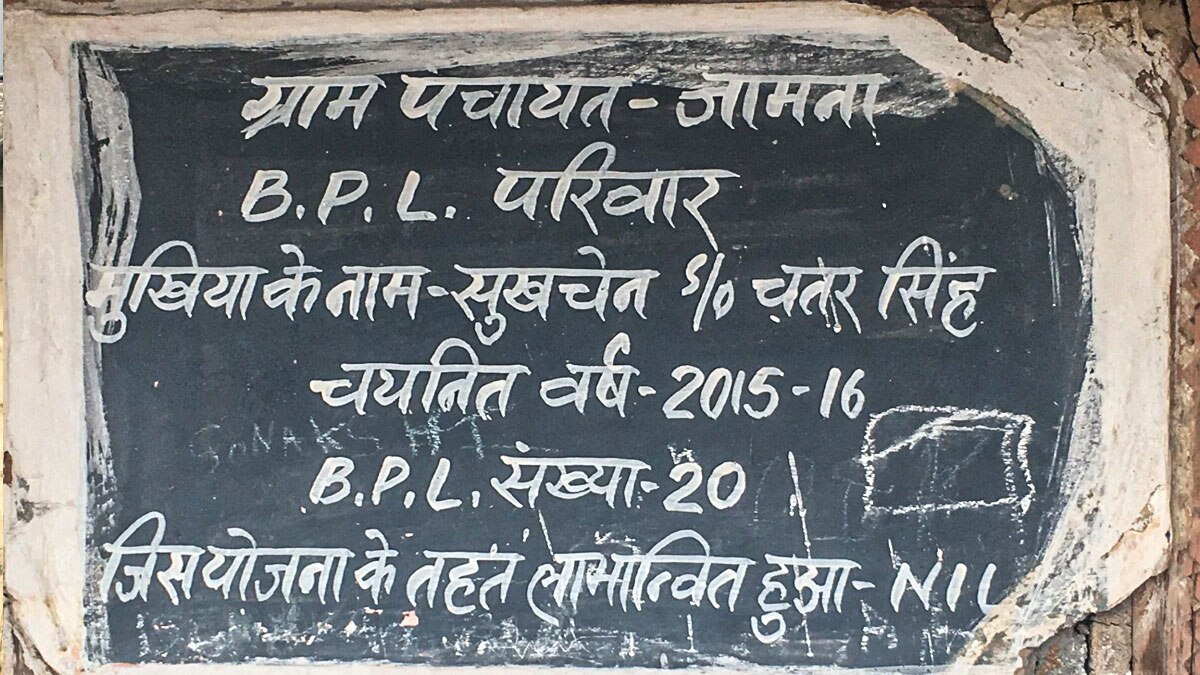 ग्राम पंचायत - जामना
B.P.L. परिवार
मुखिया के नाम - सुखचेन S/o चतर सिंह
चयनित वर्ष - 2015-16
SONAKSHI
B.P.L. संख्या - 20
जिस योजना के तहत लाभान्वित हुआ - NIL